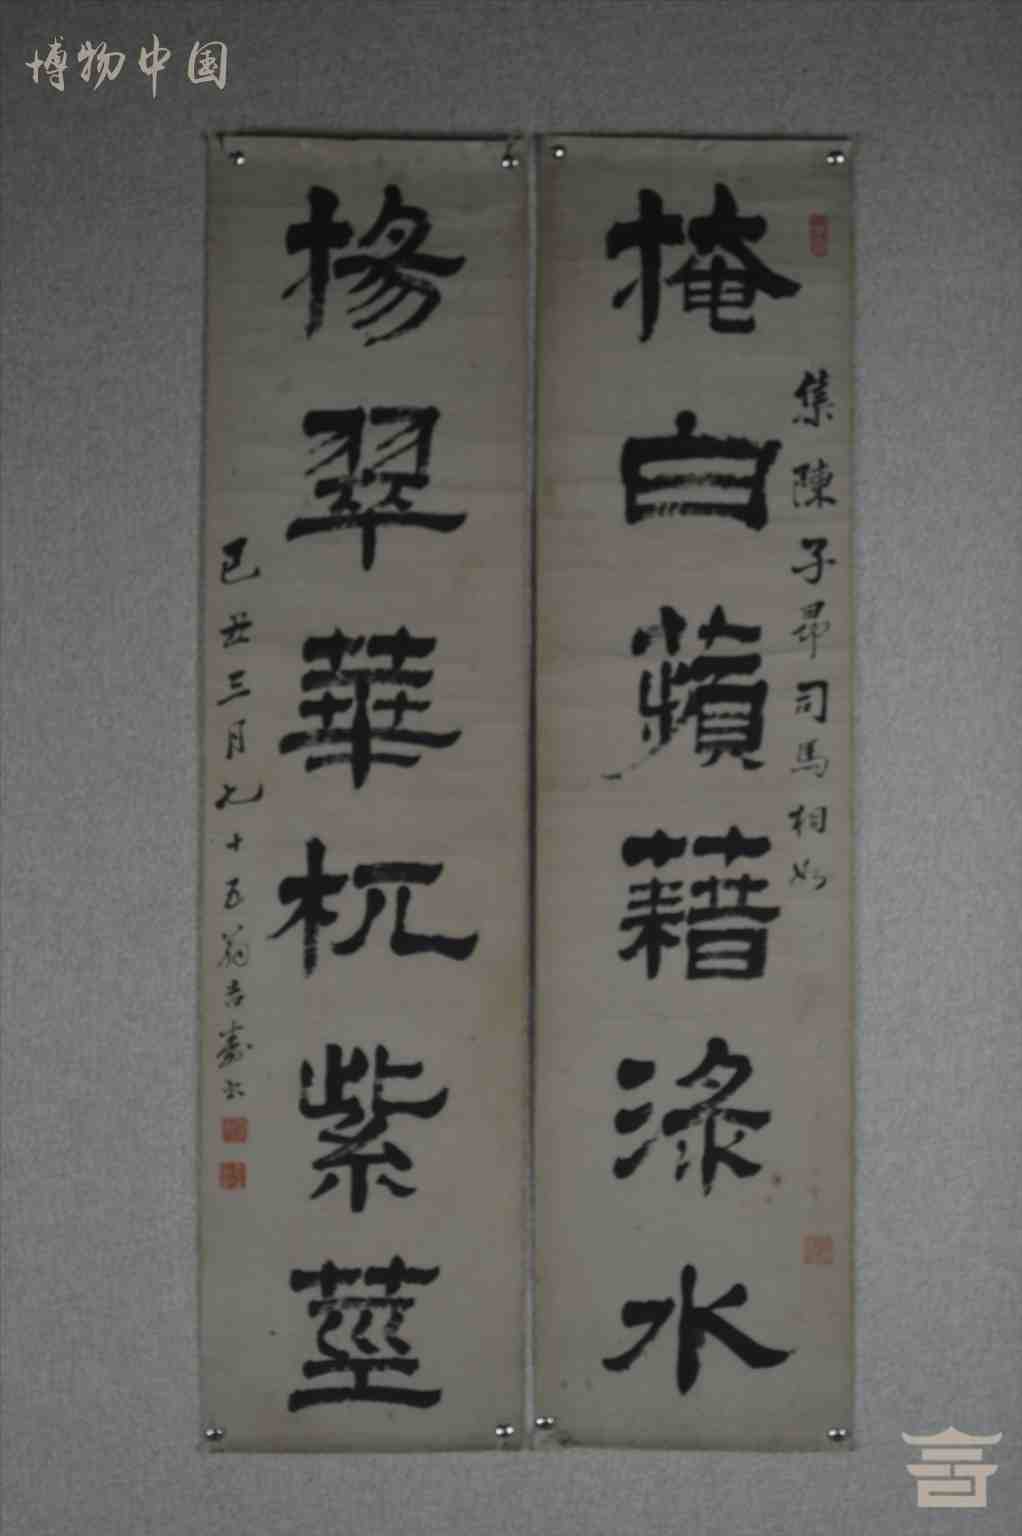 博物中国
集陳子昂司馬相如
掩白蘋藉淥水
揚翠華扤紫莖
己丑三月九十五翁吉壽書